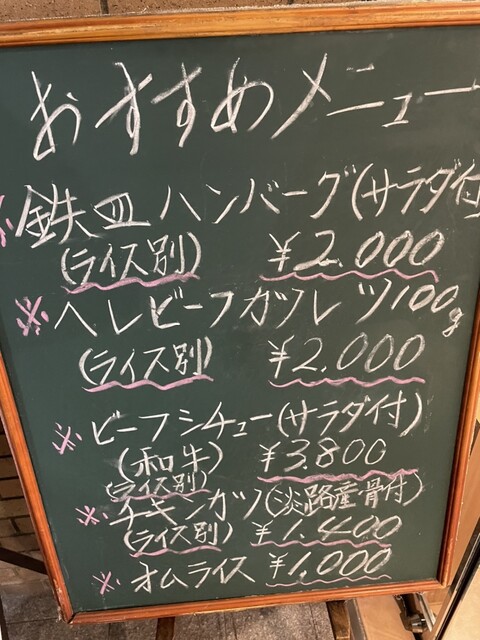 おすすめメニュー
※鉄皿ハンバーグ(サラダ付
(ライス別) ¥2.000
※ヘレビーフカツレツ100g
(ライス別) ¥2.000
※ビーフシチュー(サラダ付)
(和牛) ¥3.800
(ライス別)
※チキンカツ(淡路産骨付)
(ライス別) ¥1.400
※オムライス ¥1,000